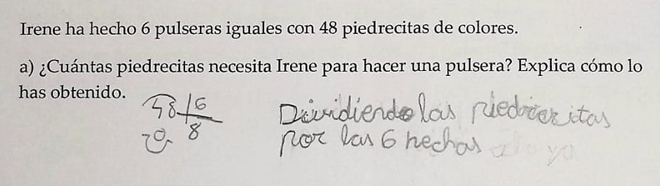 Irene ha hecho 6 pulseras iguales con 48 piedrecitas de colores.
a) ¿Cuántas piedrecitas necesita Irene para hacer una pulsera? Explica cómo lo
has obtenido.
48 6
0 8
Dividiendo las piedrecitas
por las 6 hechas